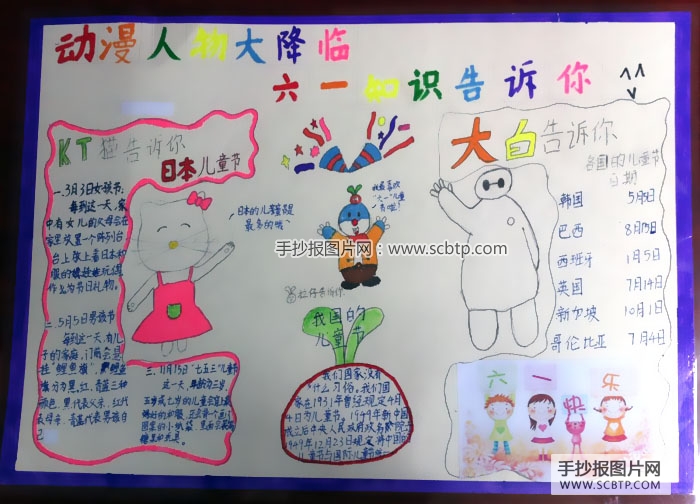 动漫人物大降临
六一知识告诉你
KT猫告诉你
日本儿童节
一、3月3日女孩节:
每到这一天,家
中有女儿的父母会在
家里放置一个阵列台
台上放上着日本和
服的
作为节日礼物。
二、5月5日男孩节
每到这一天,有儿
子的家庭,门前会悬
挂“鲤鱼旗”,鲤鱼
旗分为黑、红、青蓝三种
颜色,黑代表父亲、红代
表母亲、青蓝代表男孩自
己
三、11月15日“七五三”儿童节
日本的儿童节是
最多的哦~
我最喜欢
“六一”儿童
节啦!
手抄报图片网:www.scbtp.com
告诉你
我国的
儿童节
我们国家没有
什么习俗。我们国
家在1931年曾经规定4月
4日为儿童节。1949年新中国
成立后中央人民政府政务院于
1949年12月23日规定将中国的
儿童节与国际儿童节统一
大白告诉你
各国的儿童节
日期
韩国 5月5日
巴西 8月15日
西班牙 1月5日
英国 7月14日
新加坡 10月1日
哥伦比亚 7月4日
六一快乐
手抄报图片网
WWW.SCBTP.COM